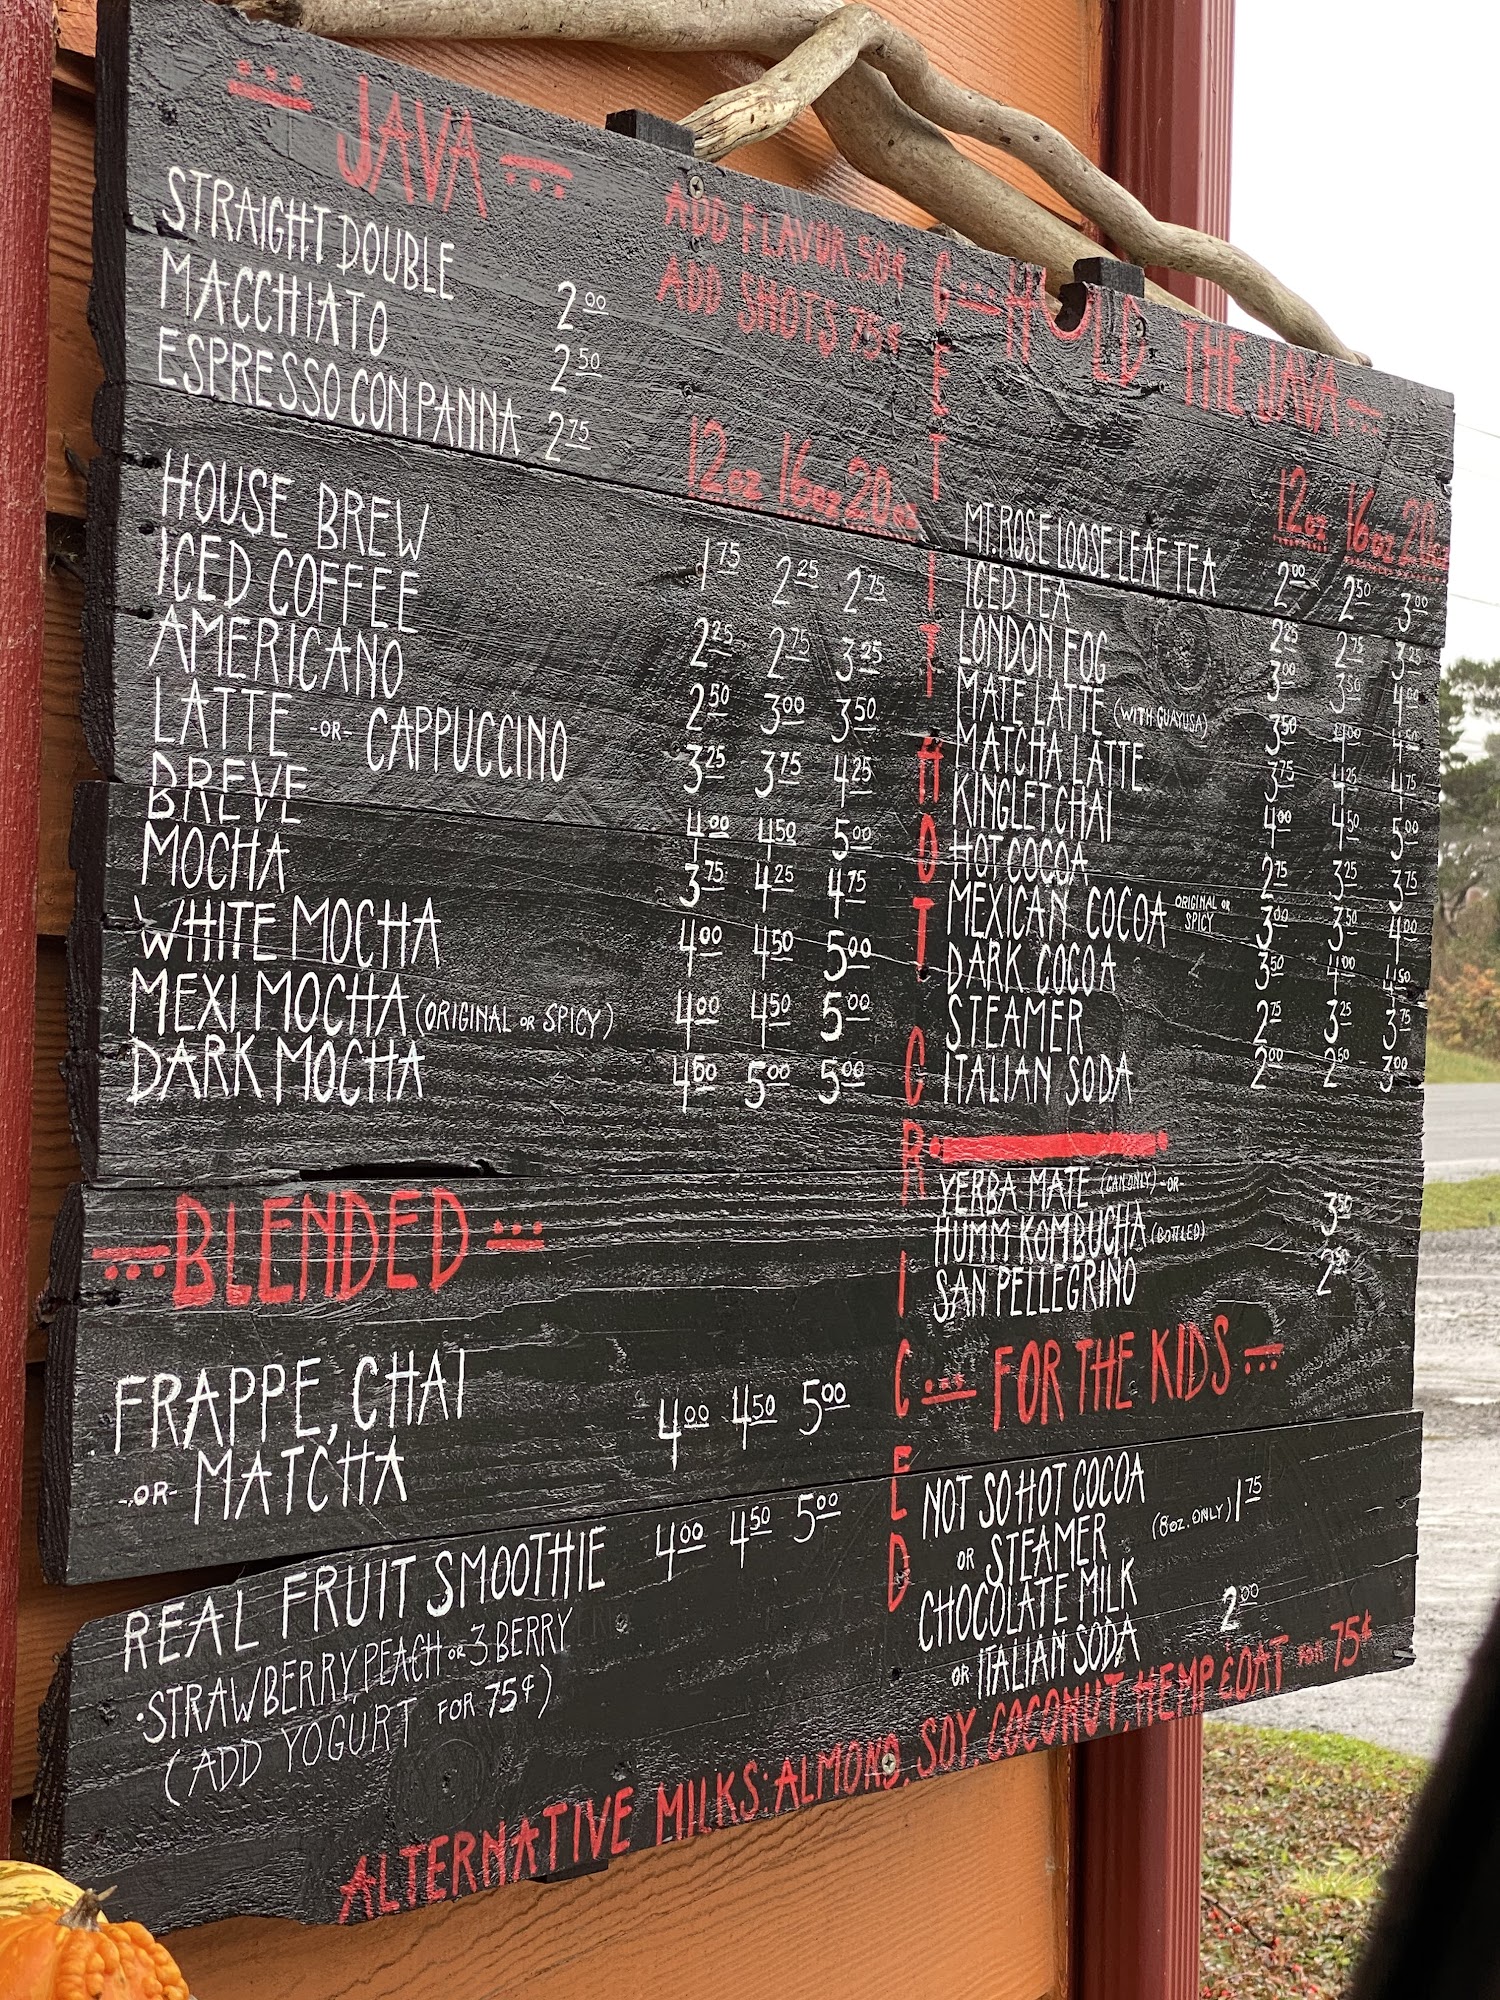 JAVA
ADD FLAVOR 50¢
ADD SHOTS 75¢
STRAIGHT DOUBLE 2.00
MACCHIATO 2.50
ESPRESSO CON PANNA 2.75
12oz 16oz 20oz
HOUSE BREW 1.75 2.25 2.75
ICED COFFEE 2.25 2.75 3.25
AMERICANO 2.50 3.00 3.50
LATTE -OR- CAPPUCCINO 3.25 3.75 4.25
BREVE 4.00 4.50 5.00
MOCHA 3.75 4.25 4.75
WHITE MOCHA 4.00 4.50 5.00
MEXI MOCHA (ORIGINAL OR SPICY) 4.00 4.50 5.00
DARK MOCHA 4.50 5.00 5.00
BLENDED
FRAPPE, CHAI
-OR- MATCHA 4.00 4.50 5.00
REAL FRUIT SMOOTHIE 4.00 4.50 5.00
·STRAWBERRY, PEACH OR 3 BERRY
(ADD YOGURT FOR 75¢)
GET IT HOT
OR ICED
HOLD THE JAVA
12oz 16oz 20oz
MT. ROSE LOOSE LEAF TEA 2.00 2.50 3.00
ICED TEA 2.25 2.75 3.25
LONDON FOG 3.00 3.50 4.00
MATE LATTE (WITH GUAYUSA) 3.50 4.00 4.50
MATCHA LATTE 3.75 4.25 4.75
KINGLET CHAI 4.00 4.50 5.00
HOT COCOA 2.75 3.25 3.75
MEXICAN COCOA ORIGINAL OR SPICY 3.00 3.50 4.00
DARK COCOA 3.50 4.00 4.50
STEAMER 2.75 3.25 3.75
ITALIAN SODA 2.00 2.50 3.00
YERBA MATE (CAN ONLY) -OR-
HUMM KOMBUCHA (BOTTLED) 3.50
SAN PELLEGRINO 2.50
FOR THE KIDS
NOT SO HOT COCOA
OR STEAMER (8oz. ONLY) 1.75
CHOCOLATE MILK
OR ITALIAN SODA 2.00
ALTERNATIVE MILKS: ALMOND, SOY, COCONUT, HEMP & OAT FOR 75¢